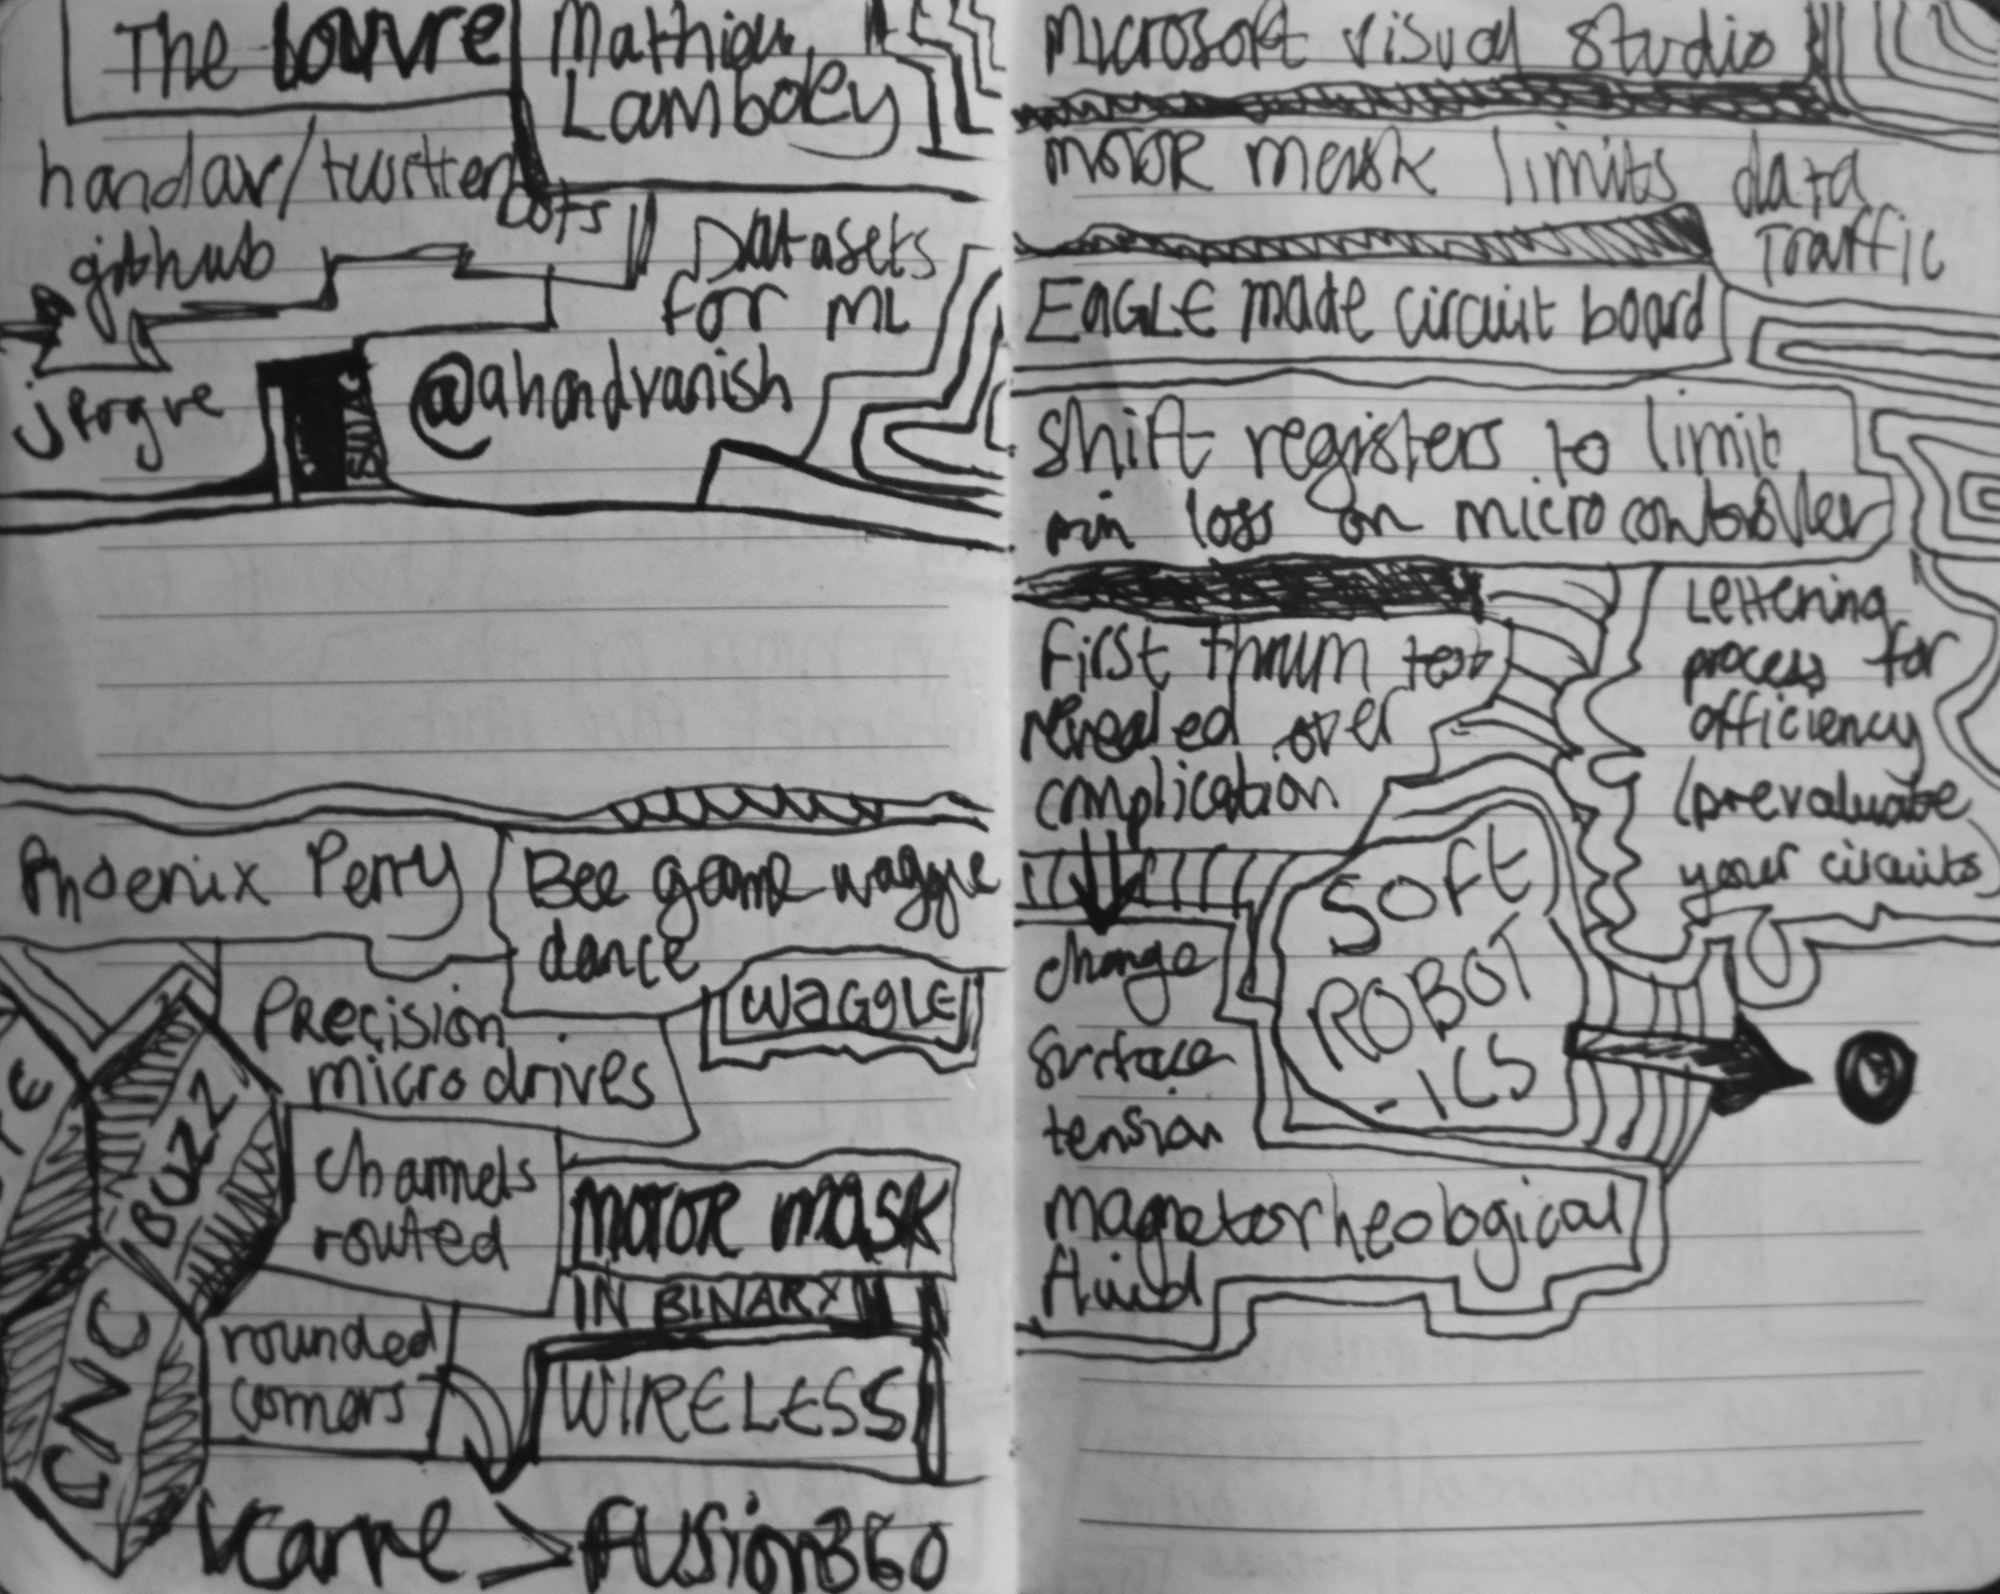 The Louvre
Mathieu
Lamboley
handav/twitter
bots
github
Datasets
for ML
@ahandvanish
Phoenix Perry
Bee game waggle
dance
WAGGLE
Precision
micro drives
BUZZ
Channels
routed
MOTOR MASK
IN BINARY
rounded
corners
WIRELESS
CNC
> FUSION360
Microsoft visual studio
MOTOR Mask limits data
Traffic
EAGLE made circuit board
Shift registers to limit
pin loss on microcontroller
First thrum test
revealed over
complication
Lettering
process for
efficiency
(prevaluate
your circuits)
change
surface
tension
SOFT
ROBOT
-ICS
magnetorheological
fluid